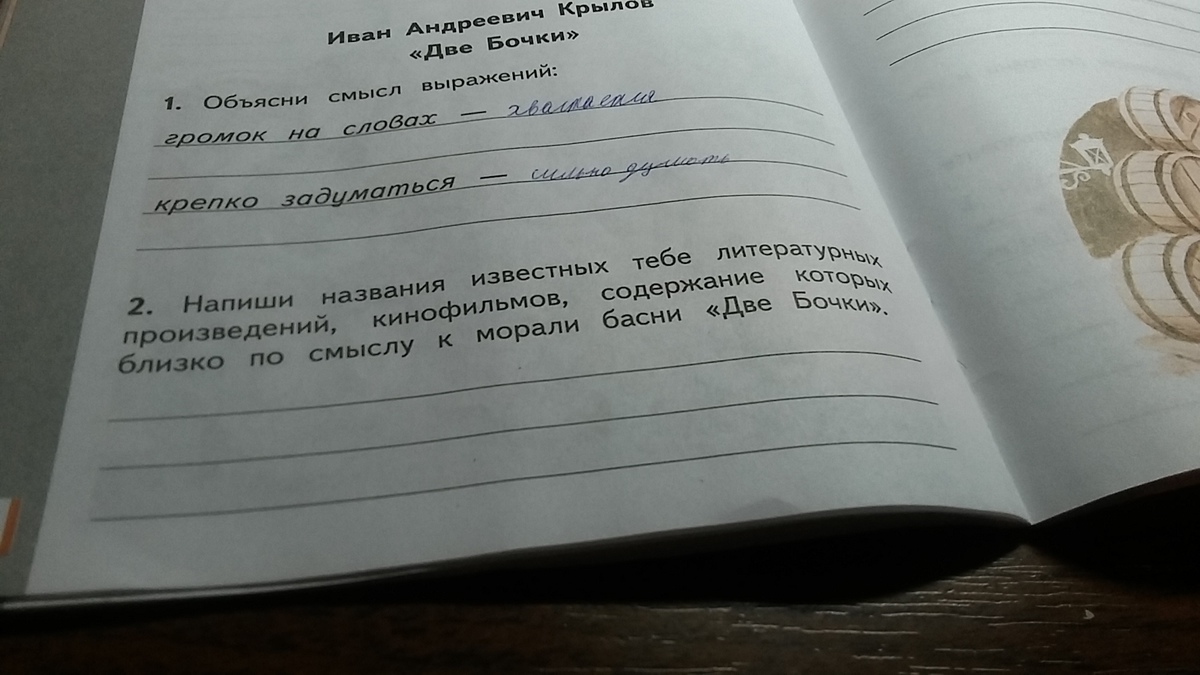 Иван Андреевич Крылов
«Две Бочки»
1. Объясни смысл выражений:
громок на словах — хвастается
крепко задуматься — сильно думать
2. Напиши названия известных тебе литературных
произведений, кинофильмов, содержание которых
близко по смыслу к морали басни «Две Бочки».